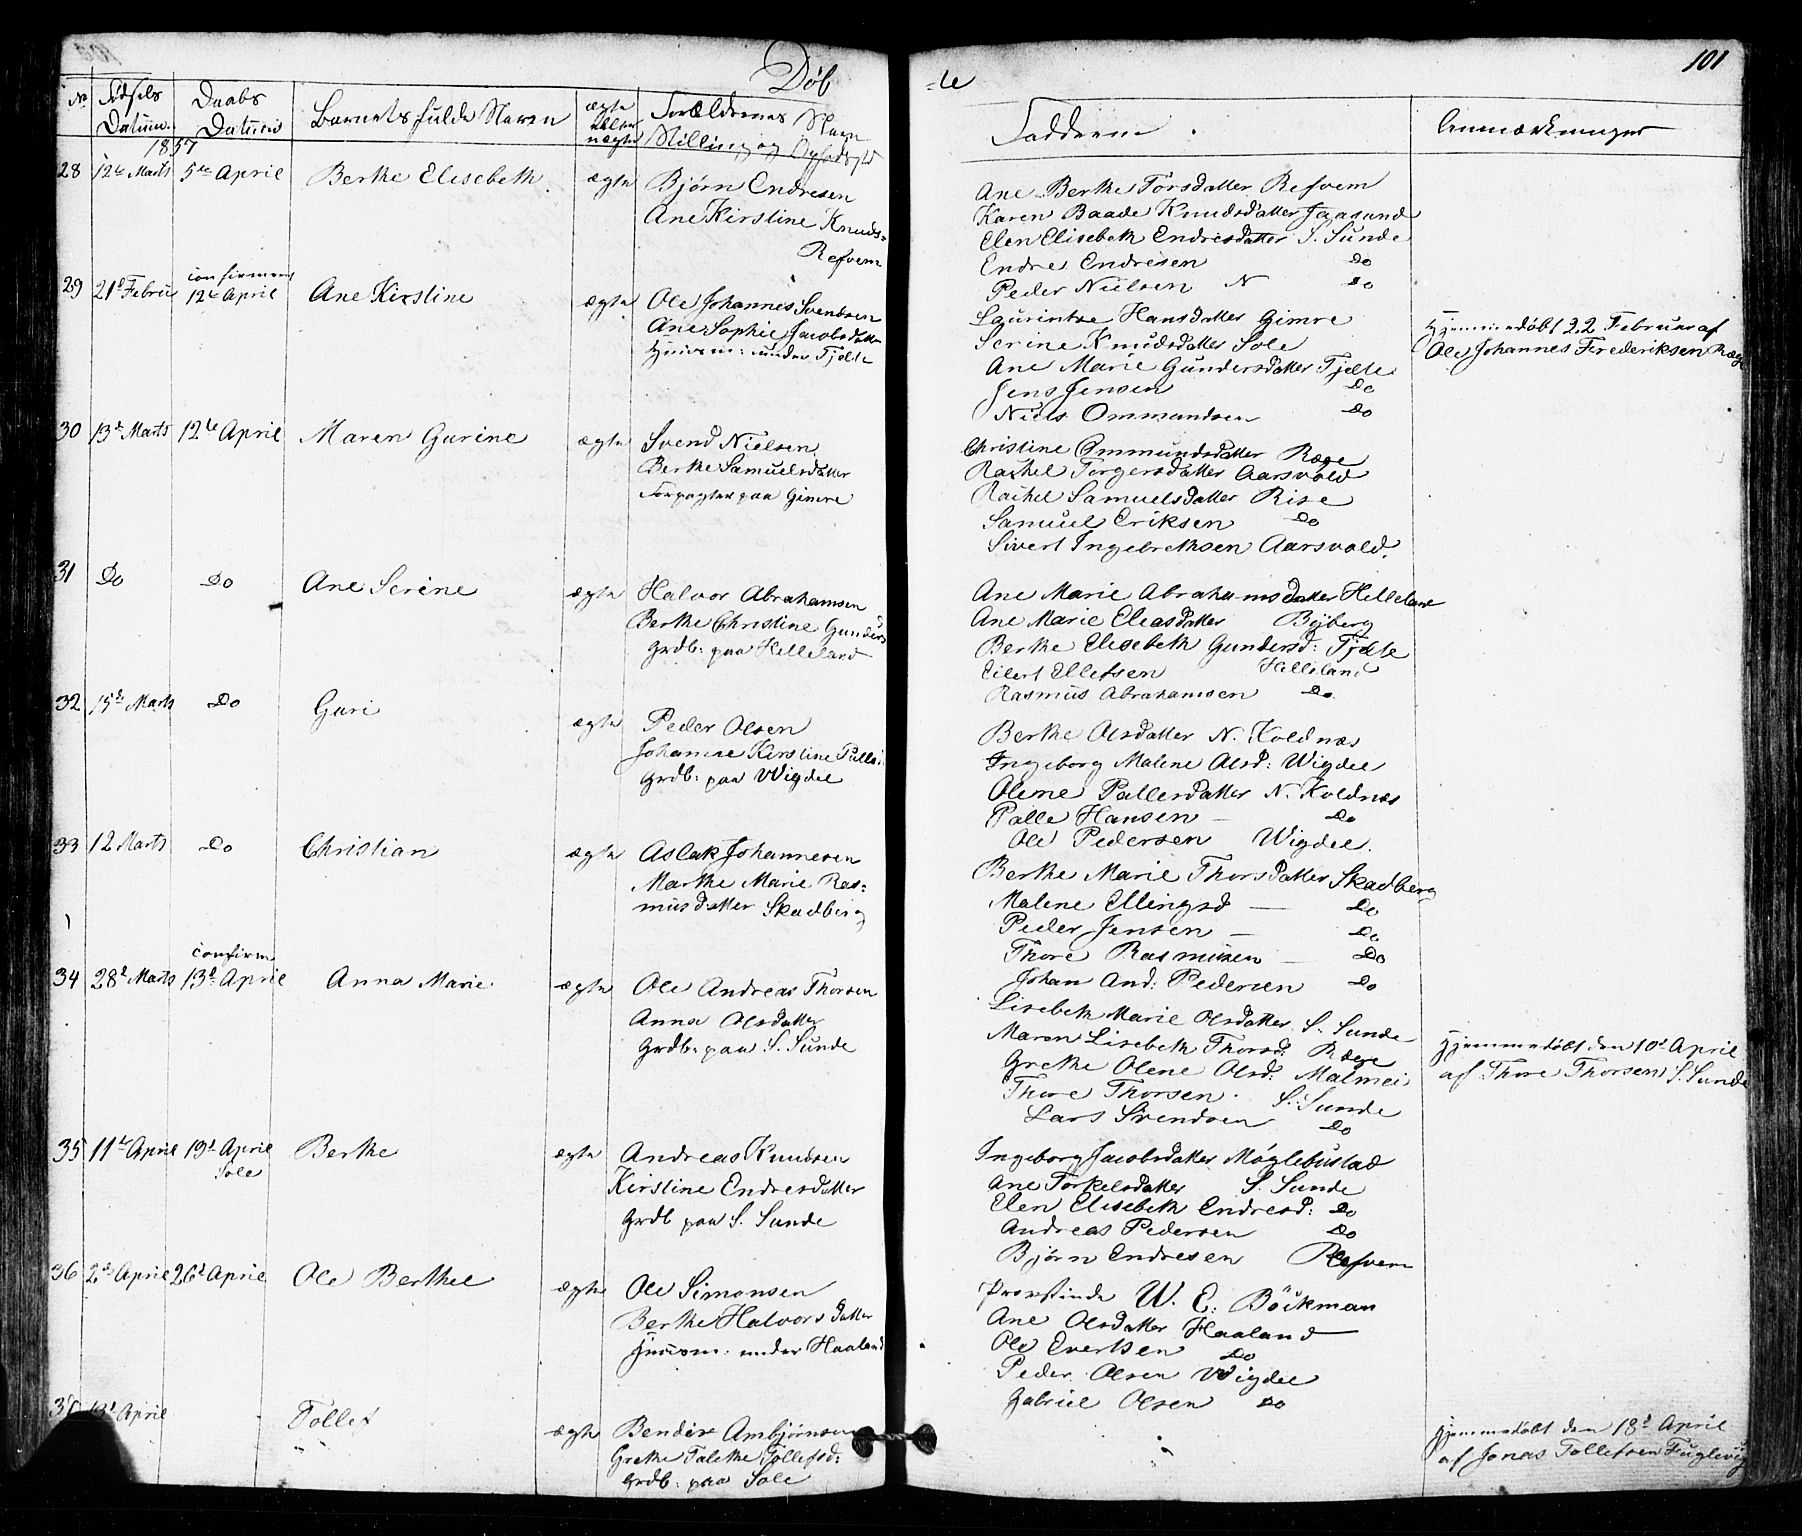 101
Døb
te
No
Fødsels Datum.
Daabs Datum
Barnets fulde Navn
ægte eller uægte
Forældrenes Navn Stilling og Opholdssted
Fadderne.
Anmærkninger
1857
28 12te Marts 5te April Berthe Elisebeth. ægte Bjørn Endresen
Ane Kirstine Knuds=
Refvem
Ane Berthe Torsdatter Refvem
Karen Baade Knudsdatter Jaasund
Elen Elisebeth Endresdatter S. Sunde
Endre Endresen Do
Peder Nielsen N Do
29 21d Febru confirmeret 12te April Ane Kirstine ægte Ole Johannes Svendsen
Ane Sophie Jacobsdatter
Huusm: under Tjelte
Laurintse Hansdatter Gimre
Serine Knudsdatter Sole
Ane Marie Gundersdatter Tjelte
Jens Jensen Do
Niels Ommundsen Do
Hjemmedøbt 22 Februar af
Ole Johannes Frederiksen Ræge
30 13d Marts 12te April Maren Gurine ægte Svend Nielsen
Berthe Samuelsdatter
Forpagter paa Gimre
Christine Ommundsdatter Ræge
Rachel Torgersdatter Aarsvold
Rachel Samuelsdatter Rise
Samuel Eriksen Do
Sivert Ingebrethsen Aarsvold.
31 Do Do Ane Serine ægte Halvor Abrahamsen
Berthe Christine Gunders
Grdb: paa Helleland
Ane Marie Abrahamsdatter Helleland
Ane Marie Eliasdatter Byberg
Berthe Elisebeth Gundersd: Tjelte
Eilert Ellefsen Helleland
Rasmus Abrahamsen Do
32 15de Marts Do Guri ægte Peder Olsen
Johanne Kirstine Palle
Grdb: paa Wigdel
Berthe Olsdatter N. Koldnæs
Ingeborg Malene Olsd: Wigdel
Olene Pallesdatter N. Koldnæs
Palle Hansen - Do
Ole Pedersen Wigdel.
33 12 Marts Do Christian ægte Aslak Johannesen
Marthe Marie Ras=
musdatter Skadberg
Berthe Marie Thorsdatter Skadberg
Malene Ellingsd — Do
Peder Jensen — Do
Thore Rasmusen — Do
Johan And: Pedersen Do
34 28d Marts confirm. 13d April Anna Marie ægte Ole Andreas Thorsen
Anna Olsdatter
Grdb: paa S. Sunde
Lisebeth Marie Olsdatter S. Sunde
Maren Lisebeth Thorsd: Ræge
Grethe Olene Olsd: Malmei
Thore Thorsen. S. Sunde
Lars Svendsen Do
Hjemmedøbt den 10d April
af Thore Thorsen S. Sunde
35 11te April 19d April Sole Berthe ægte Andreas Knudsen
Kirstine Endresdatter
Grdb paa S. Sunde
Ingeborg Jacobsdatter Møglebustad
Ane Torkelsdatter S. Sunde
Elen Elisebeth Endresd: Do
Andreas Pedersen Do
Bjørn Endresen Refvem
36 2de April 26d April Ole Berthel ægte Ole Simonsen
Berthe Halvorsdatter
Huusm: under Haaland
Provstinde W. E. Böckman
Ane Olsdatter Haaland
Ole Evertsen Do
Peder Olsen Wigdel
Gabriel Olsen Do
April Tollef ægte Bendix Ambjørnsen
Grethe Talethe Tollefsd:
Grdb: paa Sole
Hjemmedøbt den 18d April
af Jonas Tollefsen Fuglevig